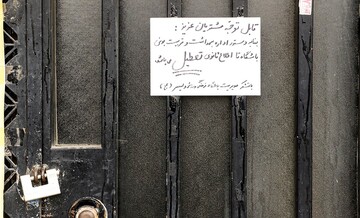 قابل توجه مشتریان عزیز :
بنا به دستور اداره بهداشت و تربیت بدنی
باشگاه تا اطلاع ثانوی تعطیل می باشد
باتشکر مدیریت باشگاه